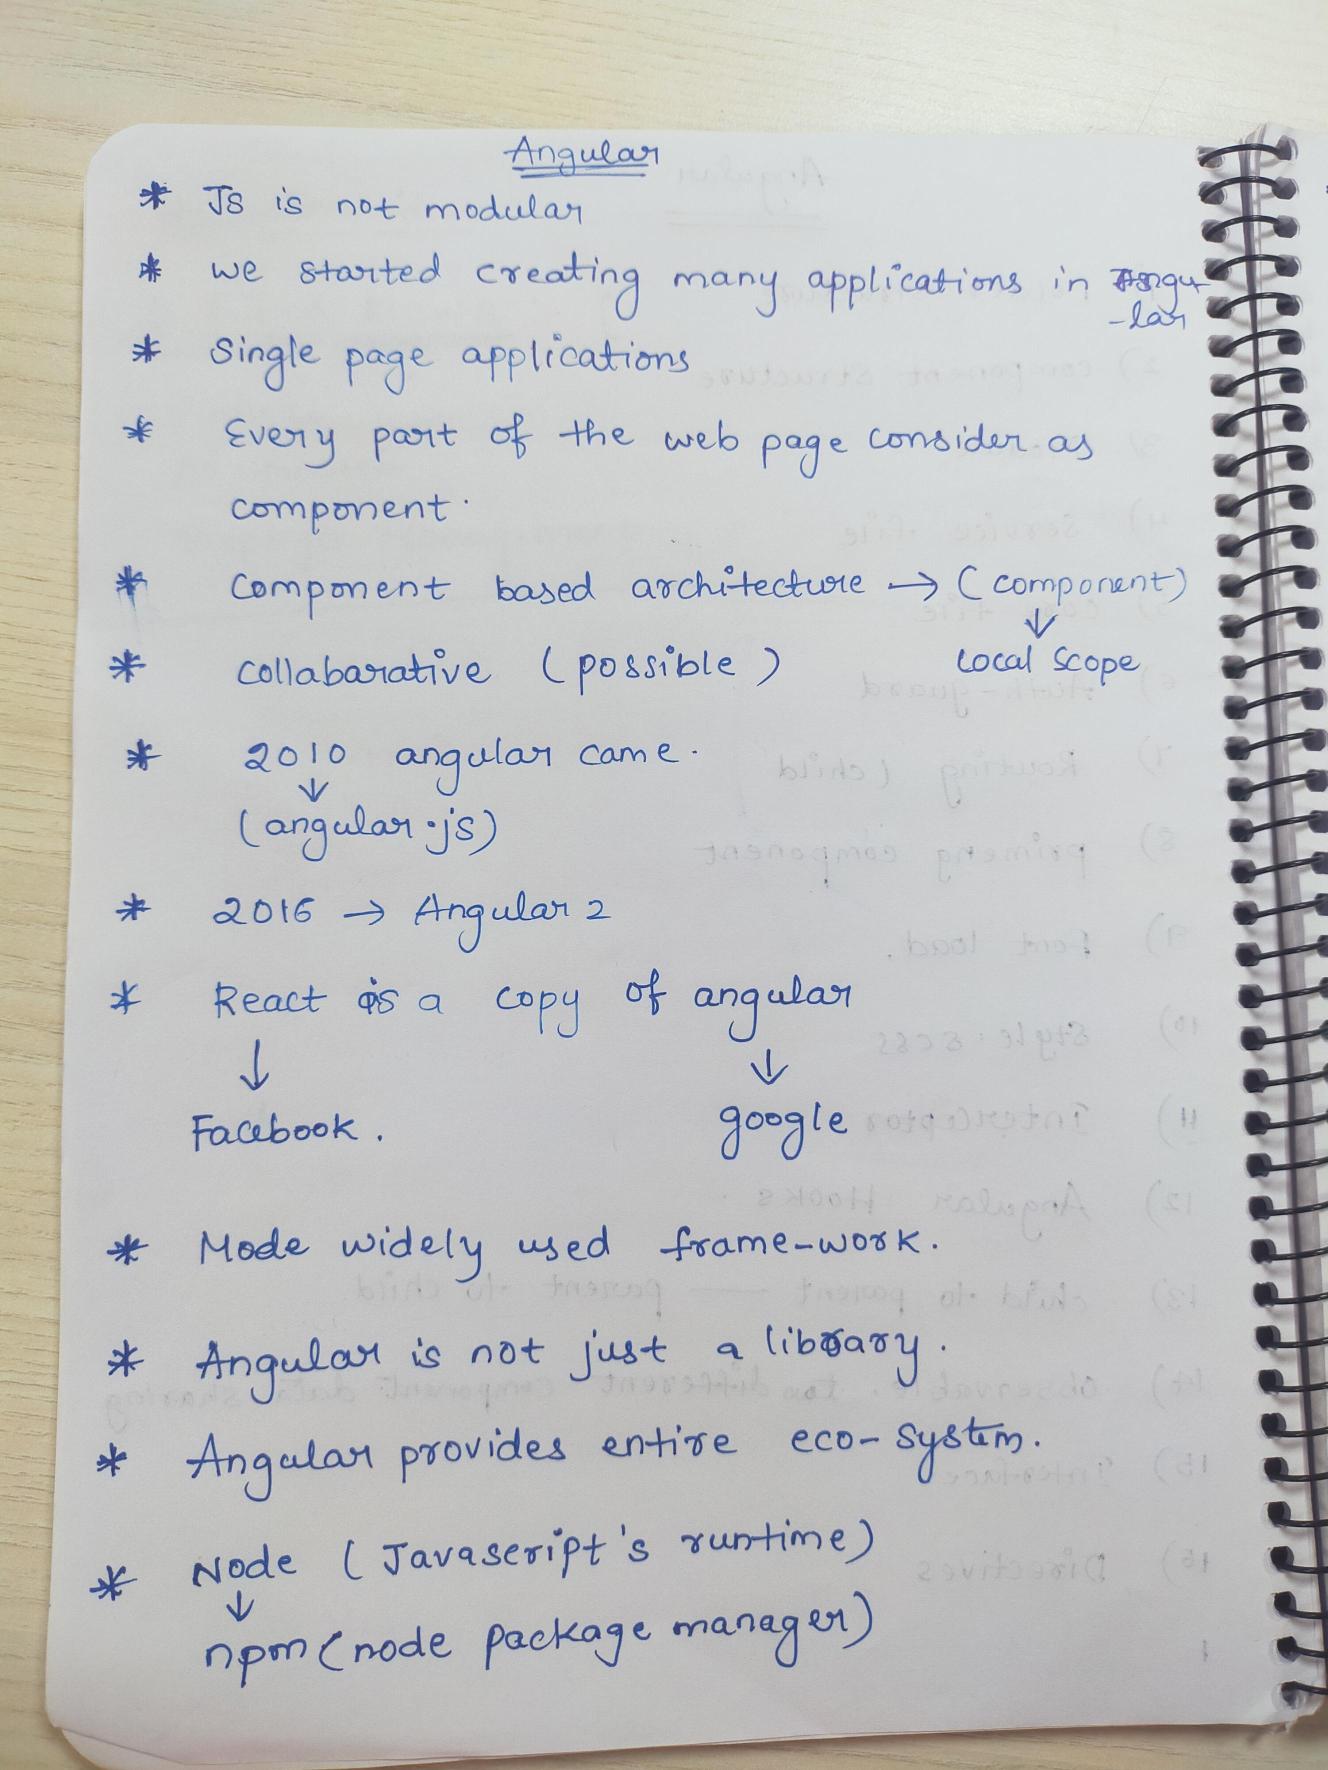 Angular
* JS is not modular
* we started creating many applications in Angu
-lar
* Single page applications
* Every part of the web page consider as
component.
* Component based architecture → (component)
↓
* collabarative (possible) Local Scope
* 2010 angular came.
↓
(angular.js)
* 2016 → Angular 2
* React is a copy of angular
↓ ↓
Facebook. google
* Mode widely used frame-work.
* Angular is not just a library.
* Angular provides entire eco-system.
* Node (Javascript's runtime)
↓
npm (node package manager)